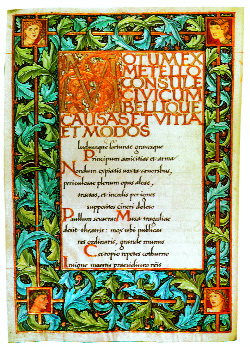 MOTUM EX
METELLO
CONSULE
CIVICUM
BELLIQUE
CAUSAS ET VITIA
ET MODOS
Ludumque fortunae gravesque
Principum amicitias et arma
Nondum expiatis uncta
periculosae plenum opus aleae,
tractas, et incedis per ignes
suppositos cineri doloso
Paullum severae Musa tragediae
desit theatris: mox ubi publicas
res ordinaris, grande munus
Cecropio repetes cothurno
Insigne maestis praesidium reis